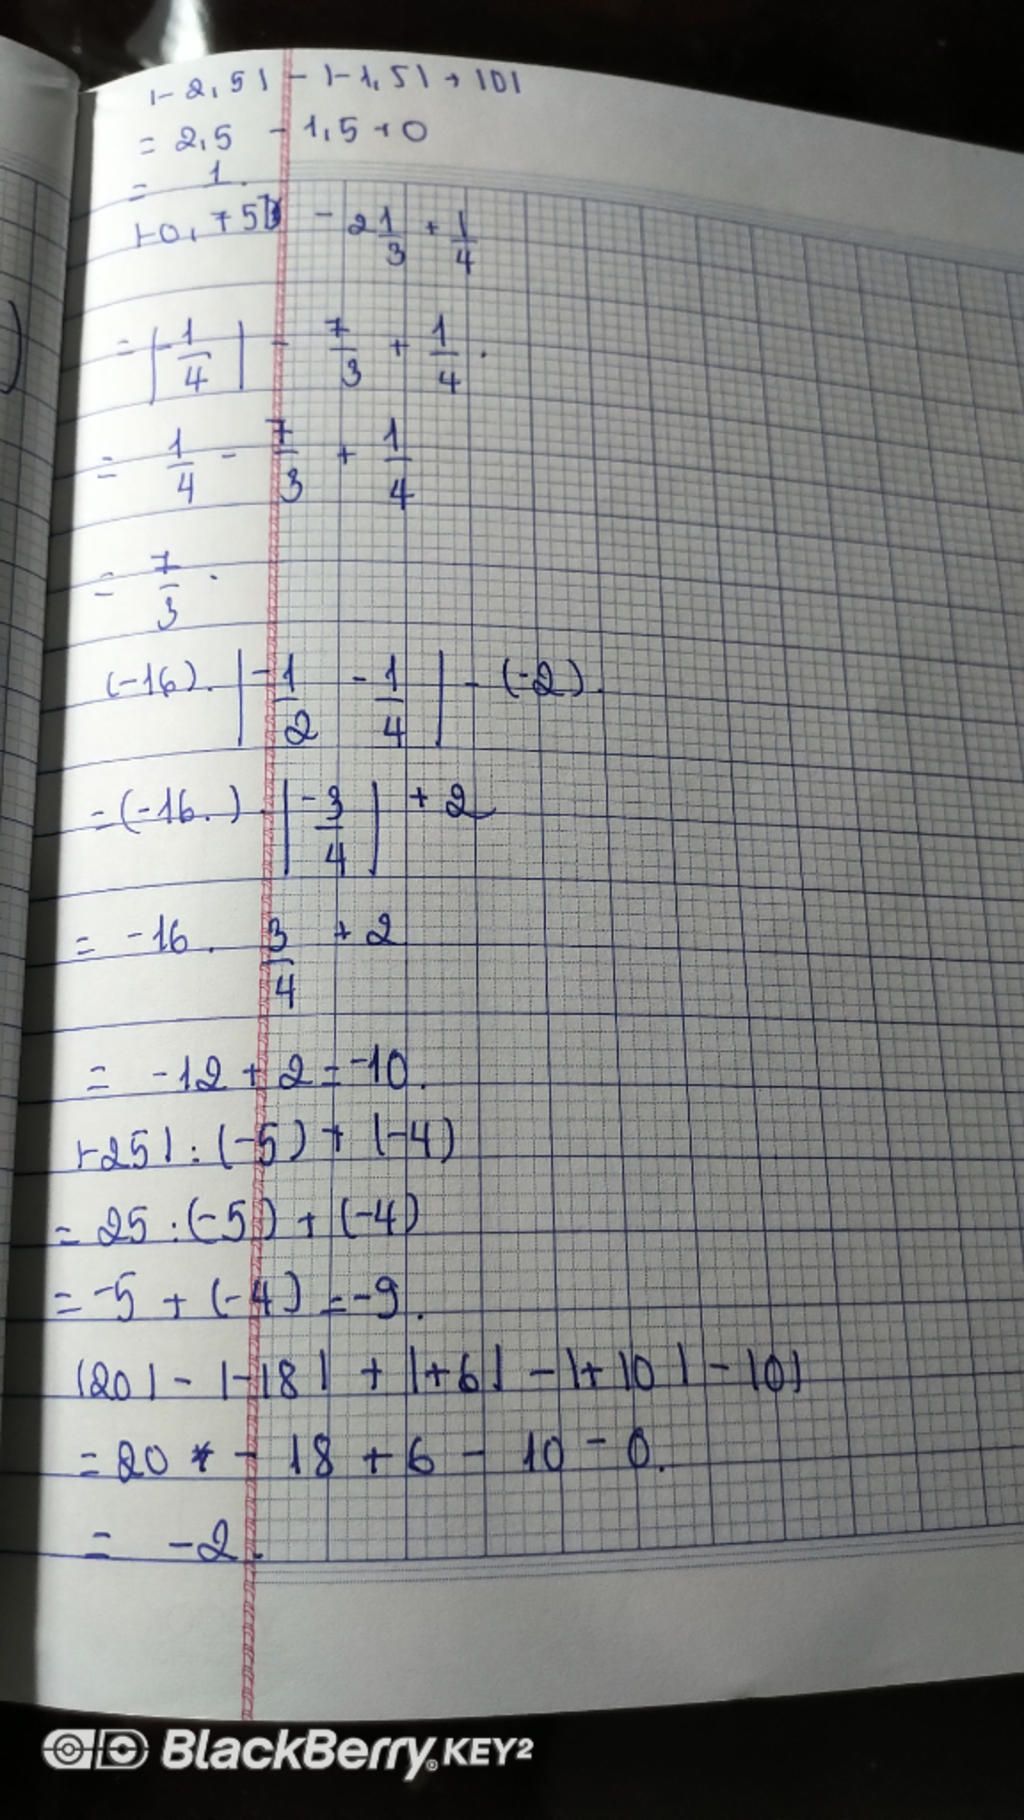 |-2,5| - |-1,5| + |0|
= 2,5 - 1,5 + 0
= 1.
|-0,75| - 2 1/3 + 1/4
= |-1/4| - 7/3 + 1/4.
= 1/4 - 7/3 + 1/4
= 7/3.
(-16). |-1/2 - 1/4| - (-2).
= (-16.) |-3/4| + 2
= -16. 3/4 + 2
= -12 + 2 = -10.
|-25| : (-5) + (-4)
= 25 : (-5) + (-4)
= -5 + (-4) = -9.
|20| - |-18| + |+6| - |+10| - |0|
= 20 - 18 + 6 - 10 - 0.
= -2.
BlackBerry KEY²